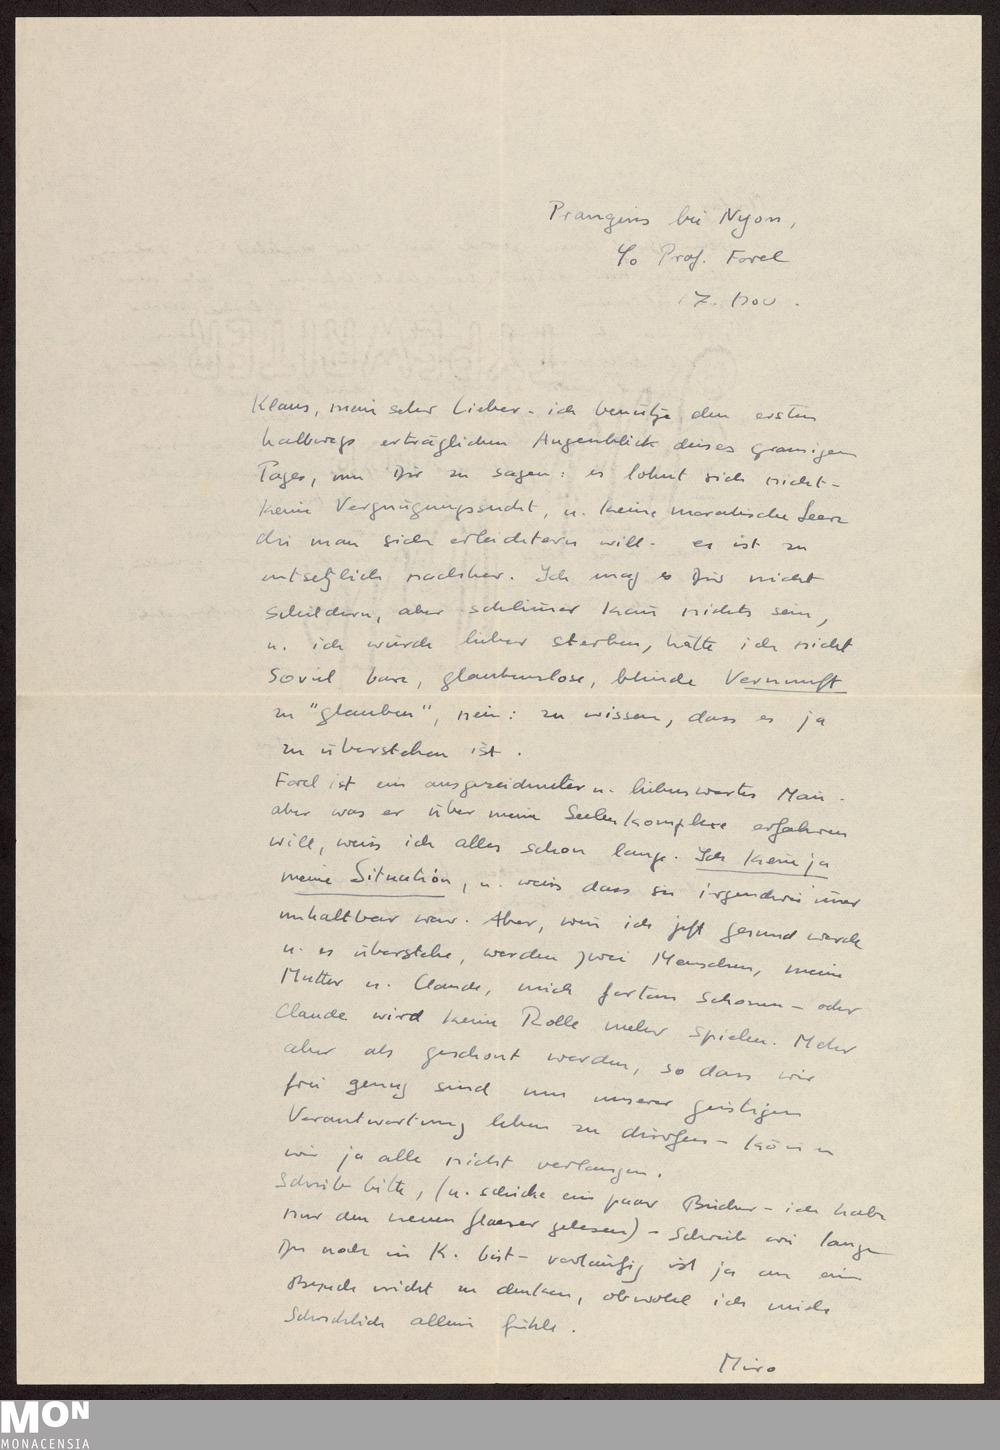 Prangins bei Nyon,
c/o Prof. Forel
17. Nov.
Klaus, mein sehr Lieber - ich benutze den ersten
halbwegs erträglichen Augenblick dieses grausigen
Tages, um Dir zu sagen: es lohnt sich nicht -
keine Vergnügungssucht, u. keine moralische Leere
die man sich erleichtern will - es ist zu
entsetzlich nachher. Ich mag es Dir nicht
schildern, aber schlimmer kann nichts sein,
u. ich würde lieber sterben, hätte ich nicht
soviel bare, glaubenslose, blinde Vernunft
zu "glauben", nein: zu wissen, dass es ja
zu überstehen ist.
Forel ist ein ausgezeichneter u. liebenswerter Mann -
aber was er über meine Seelenkomplexe erfahren
will, weiss ich alles schon lange. Ich kenne ja
meine Situation, u. weiss dass sie irgendwie immer
unhaltbar war. Aber, wenn ich jetzt gesund werde
u. es überstehe, werden zwei Menschen, meine
Mutter u. Claude, mich fortan schonen - oder
Claude wird keine Rolle mehr spielen. Mehr
aber als geschont werden, so dass wir
frei genug sind um unserer geistigen
Verantwortung leben zu dürfen - können
wir ja alle nicht verlangen.
Schreib bitte, (u. schicke ein paar Bücher - ich habe
nur den neuen Glaeser gelesen) - Schreib wie lange
Du noch in K. bist - vorläufig ist ja an ein
Besuch nicht zu denken, obwohl ich mich
schrecklich allein fühle.
Miro
MON
MONACENSIA